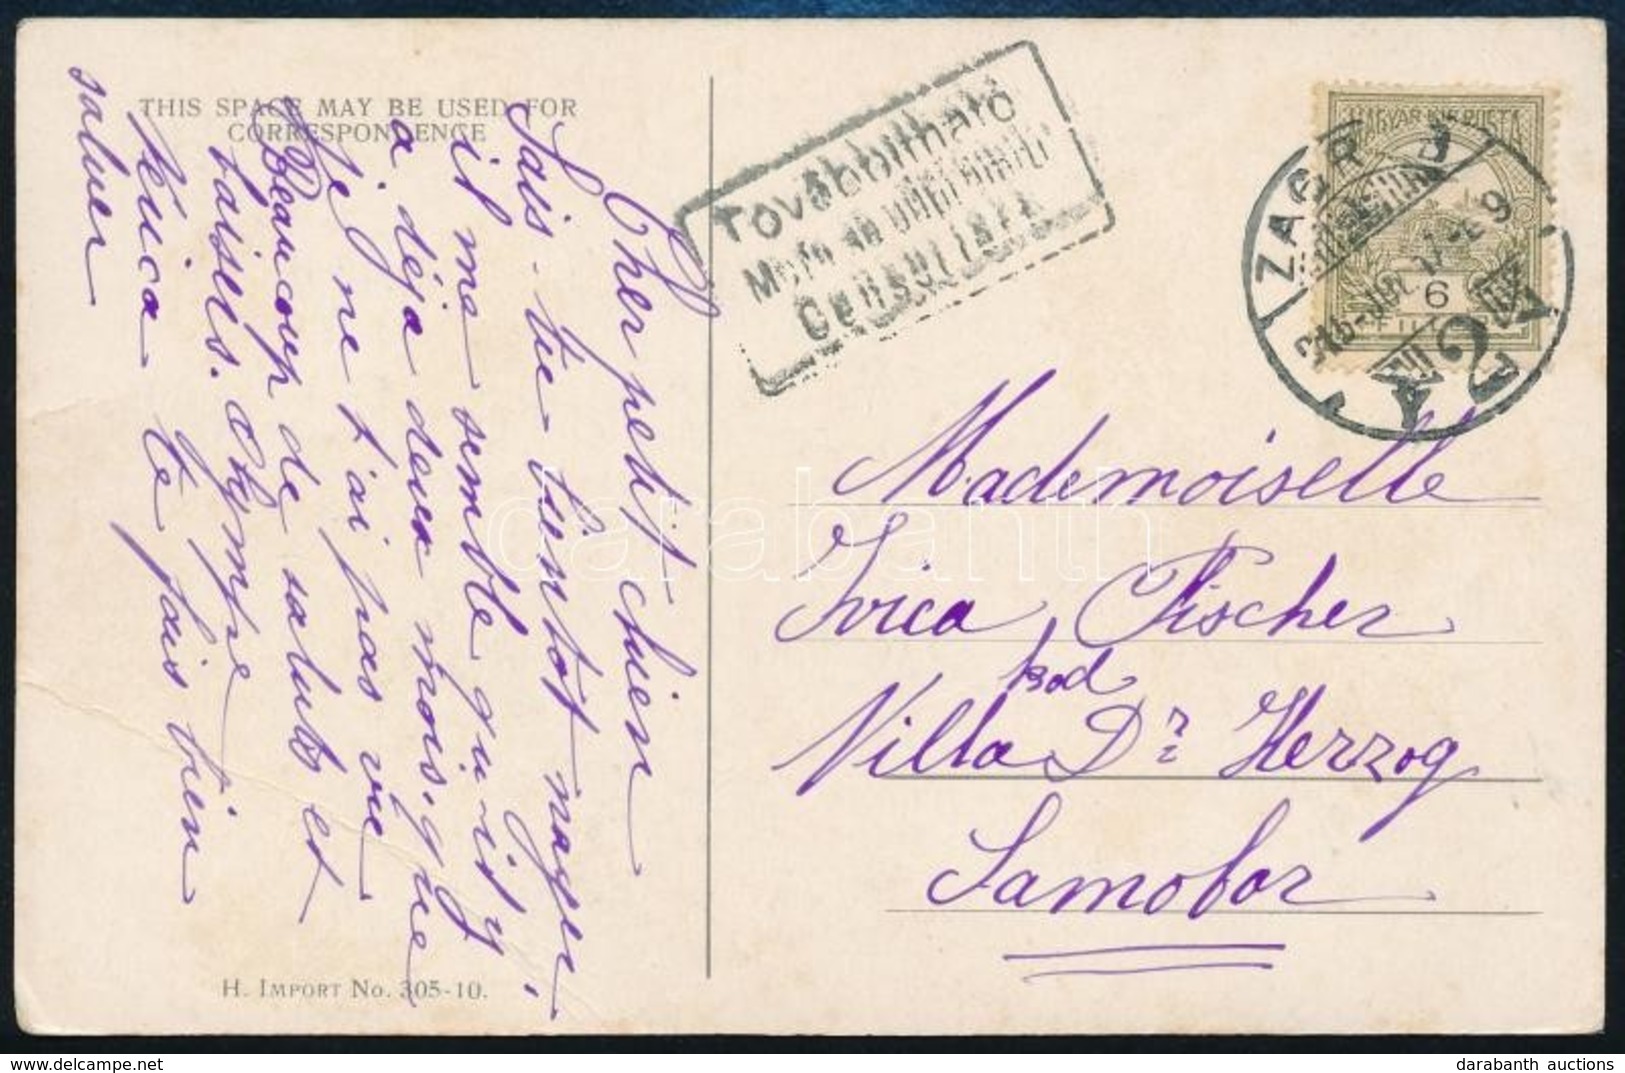 THIS SPACE MAY BE USED FOR
CORRESPONDENCE
Cher petit chien
Sais-tu bientôt nager.
il me semble qu'il y
a déja deux mois, que
je ne t'ai pas vue
Beaucoup de saluts et
baisers. Olympe
Réuca te fais bien
saluer
H. IMPORT NO. 305-10.
Továbbítható
Može se otpremiti
Censurirt
MAGYAR KIR. POSTA
6
FILLÉR
ZAGREB
ZAGRAB
916 JUL. 17
2
Mademoiselle
Ivica Fischer
kod
Villa Dr Herzog
Samobor
darabanth
darabanth auctions